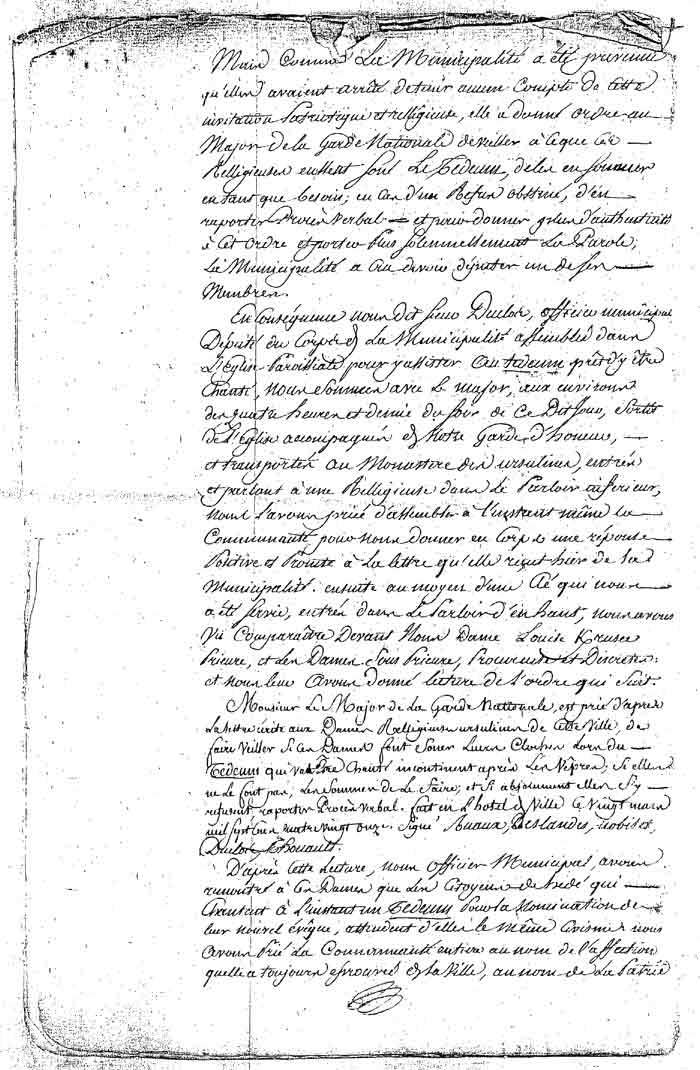 Mais Comme La Municipalité a été prevenue
qu'elles avaient arrêté de tenir aucun Compte de Cette
invitation Patriotique et Relligieuse, elle a donné ordre au
Major de la Garde Nationale de veiller à ce que Ces
Relligieuses eussent soné Le Tedeum, de les en sommer
en tant que besoin; en Cas d'un Refus obstiné, d'en
raporter Procès Verbal et pour donner plus d'authenticité
à Cet ordre et porter Plus solemnellement La Parole,
La Municipalité a Cru devoir députer un de ses
Membres.
En Conséquence nous dit sieur Duclos, officier municipal
Député du Corps de La Municipalité assemblée dans
L'Eglise Paroissiale pour y assister au tedeum prêt d'y être
Chanté, nous sommes avec Le major, aux environs
des quatre heures et demie du soir de Ce Dit Jour, sortis
de L'Eglise acompagnés de Notre Garde d'honneur,
et transportés au Monastere des ursulines, entrés
et parlant à une Relligieuse dans Le Parloir inferieur,
nous l'avons priée d'assembler à l'instant même la
Communauté pour nous donner en Corps une réponse
Positive et Précise à La lettre qu'elle reçut hier de la
Municipalité. ensuite au moyen d'une Clé qui nous
a été servie, entrés dans Le Parloir d'en haut, nous avons
Vü Comparaître Devant Nous Dame Louise
Prieure, et Les Dames Sous Prieure, et Discretes.
et nous leur avons donné lecture de l'ordre qui suit.
Monsieur Le Major de La Garde Nationale, est prié d'après
La lettre écrite aux Dames Relligieuses ursulines de Cette Ville, de
faire Veiller si Ces Dames font Soner Leurs Cloches Lors du
Tedeum qui va être Chanté incontinent après Les Vêpres; si elles
ne Le font pas, Les sommer de Le faire; et si absolument elles s'y
refusent, raporter Procès Verbal. fait en L'hotel de Ville Ce Vingt mars
mil sept Cent quatre vingt onze. signé Ruaux, Deslandes, nobilet,
Duclos, Rouault.
D'après Cette Lecture, nous officier Municipal, avons
remontré à Ces Dames que Les Citoyens de hedé qui
Chantent à L'instant un Tedeum Pour La Nomination de
leur nouvel évêque, attendent d'elles le même Civisme; nous
avons Prié La Communauté entiere au nom de l'affection
quelle a toujours eprouvée de la Ville, au nom de La Patrie